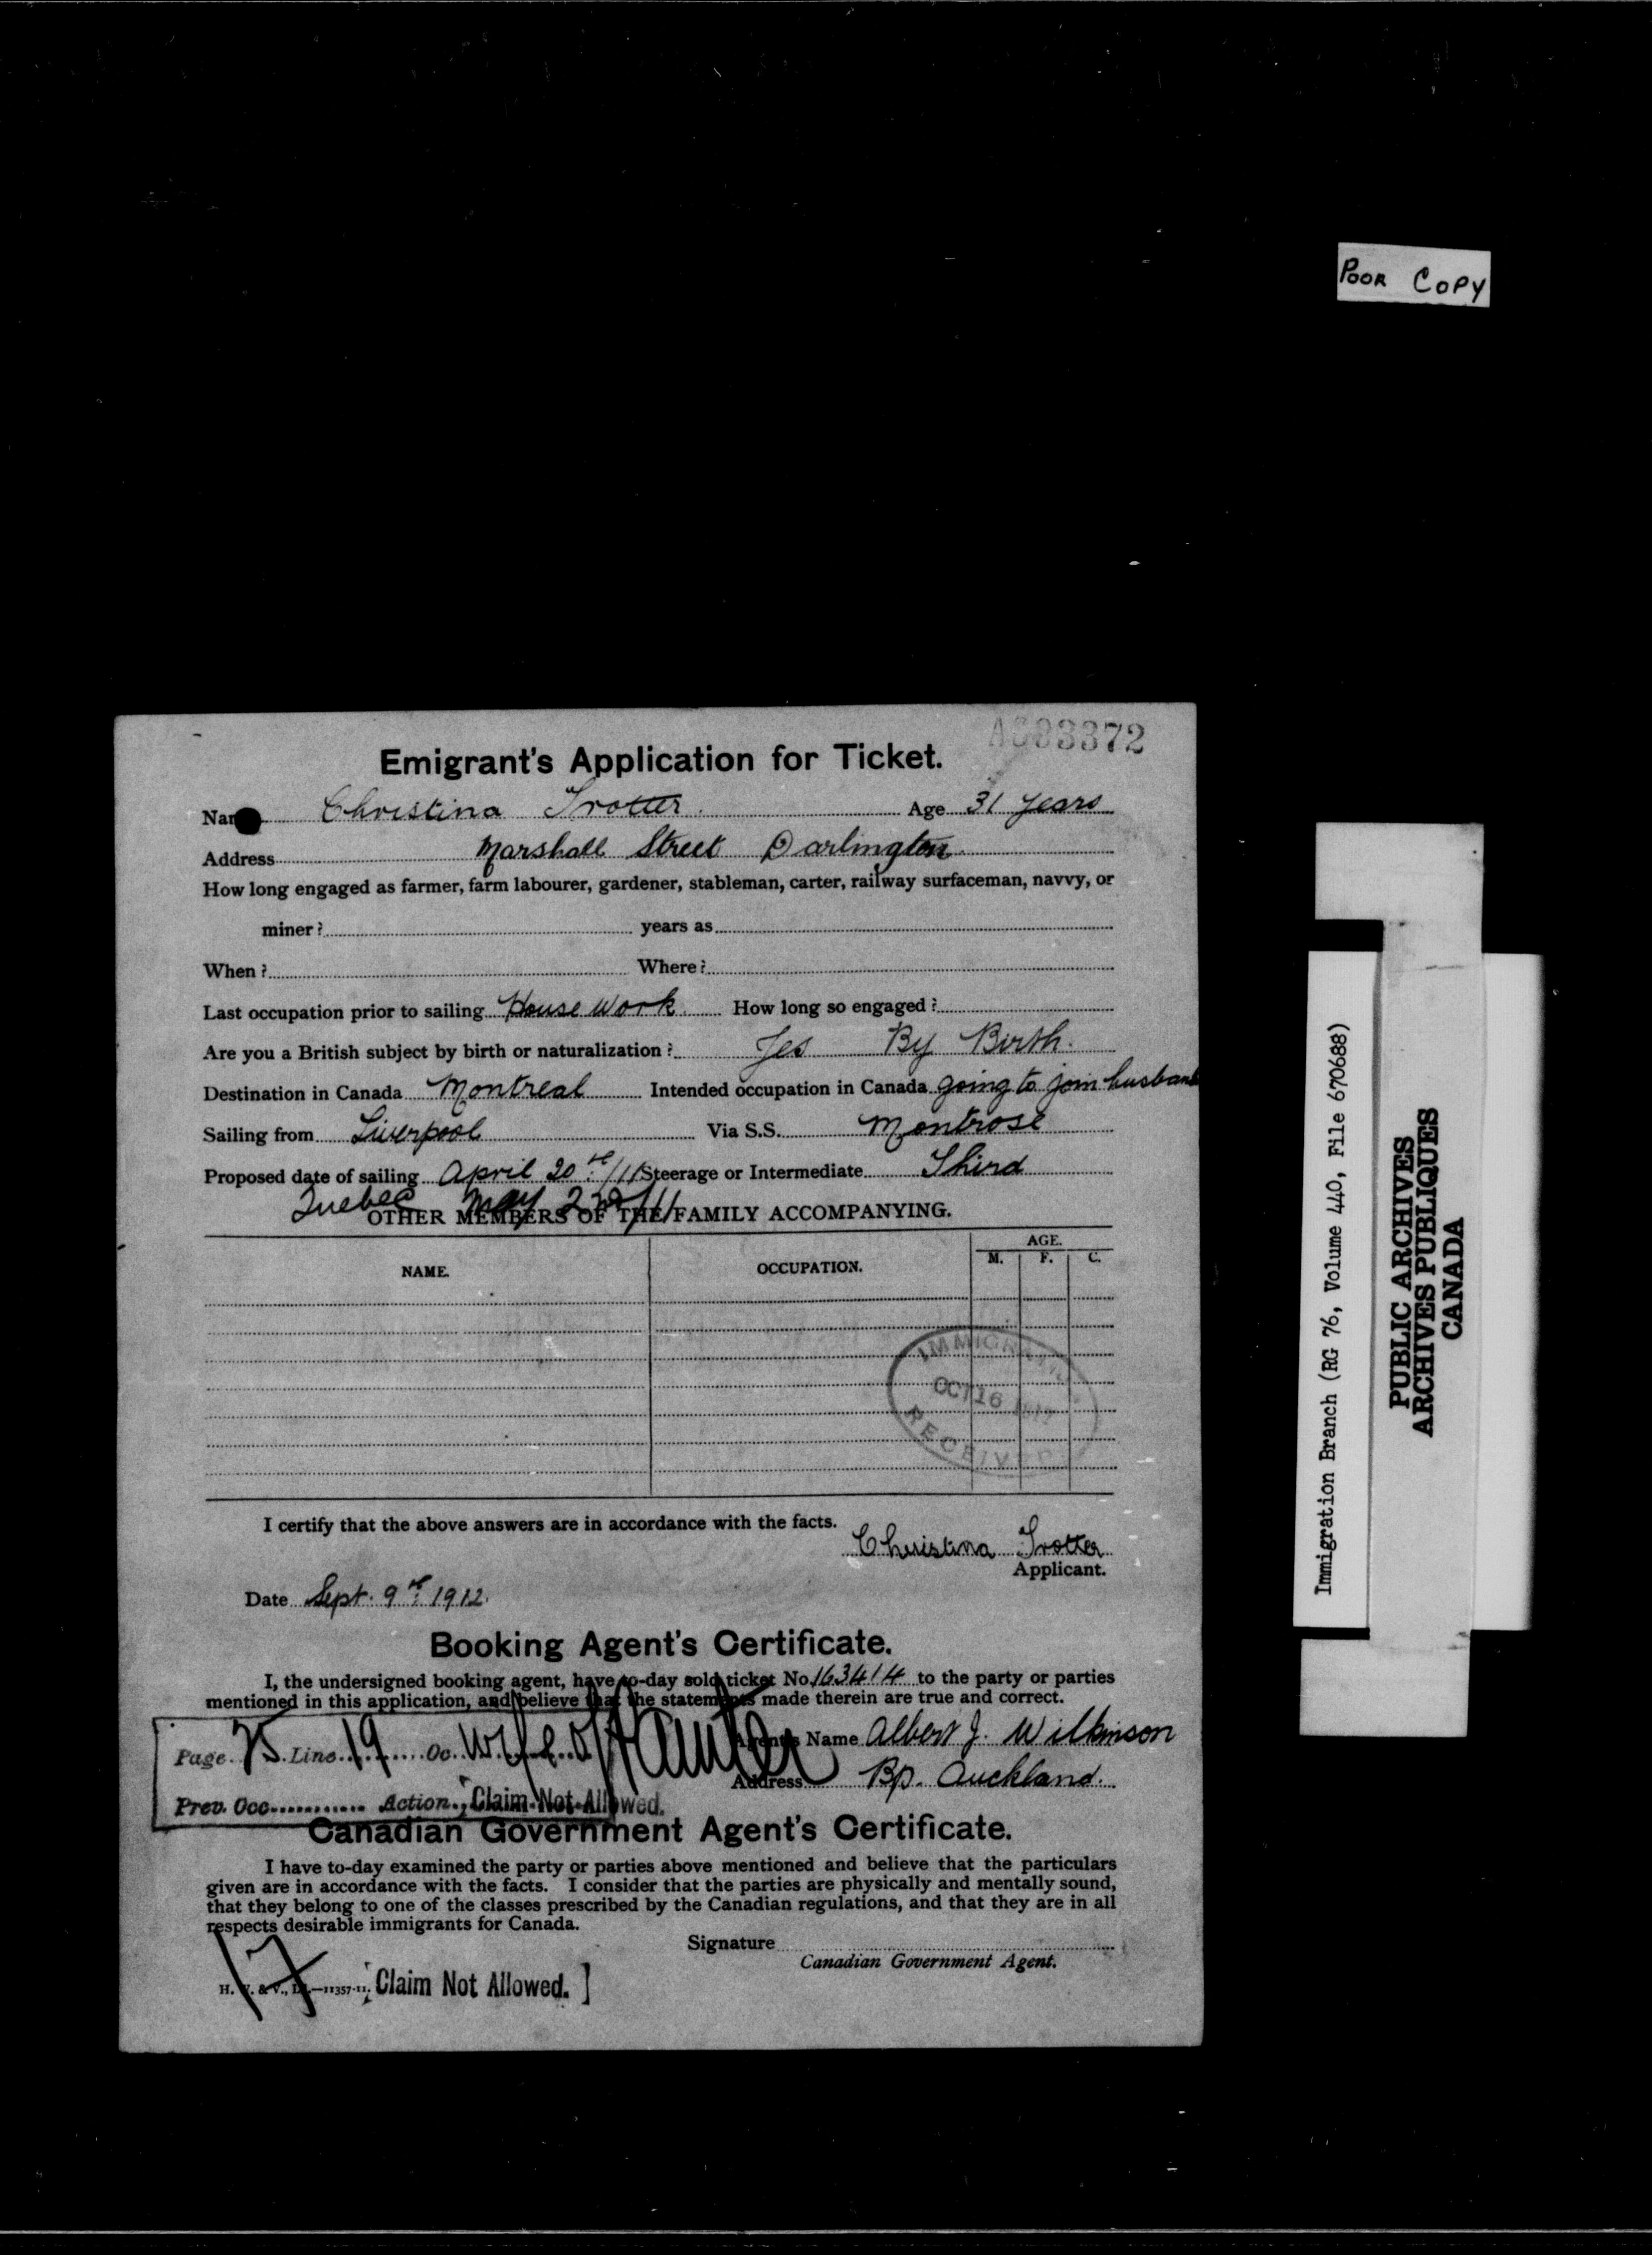 POOR COPY
3372
Emigrant's Application for Ticket.
Christina Trotter Age 31 years
Address Marshall Street Darlington
How long engaged as farmer, farm labourer, gardener, stableman, carter, railway surfaceman, navvy, or
miner? years as
When? Where?
Last occupation prior to sailing House Work How long so engaged?
Are you a British subject by birth or naturalization? Yes By Birth.
Destination in Canada Montreal Intended occupation in Canada going to join husband
Sailing from Liverpool Via S.S. Montrose
Proposed date of sailing April 20th/11 Steerage or Intermediate Third
Quebec May 2nd/11
OTHER MEMBERS OF THE FAMILY ACCOMPANYING.
NAME. OCCUPATION. AGE.
M. F. C.
IMMIGRATION
OCT 16
RECEIVED
I certify that the above answers are in accordance with the facts.
Christina Trotter
Applicant.
Date Sept. 9th 1912.
Booking Agent's Certificate.
I, the undersigned booking agent, have to-day sold ticket No. 163414 to the party or parties
mentioned in this application, and believe that the statements made therein are true and correct.
Page 75 Line 19 Oc. Wife of
Agent's Name Albert J. Wilkinson
Address Bp. Auckland.
Prev. Occ. Action. Claim Not Allowed.
Canadian Government Agent's Certificate.
I have to-day examined the party or parties above mentioned and believe that the particulars
given are in accordance with the facts. I consider that the parties are physically and mentally sound,
that they belong to one of the classes prescribed by the Canadian regulations, and that they are in all
respects desirable immigrants for Canada.
Signature
Canadian Government Agent.
17
11357-11. [Claim Not Allowed.]
Immigration Branch (RG 76, Volume 440, File 670688)
PUBLIC ARCHIVES
ARCHIVES PUBLIQUES
CANADA